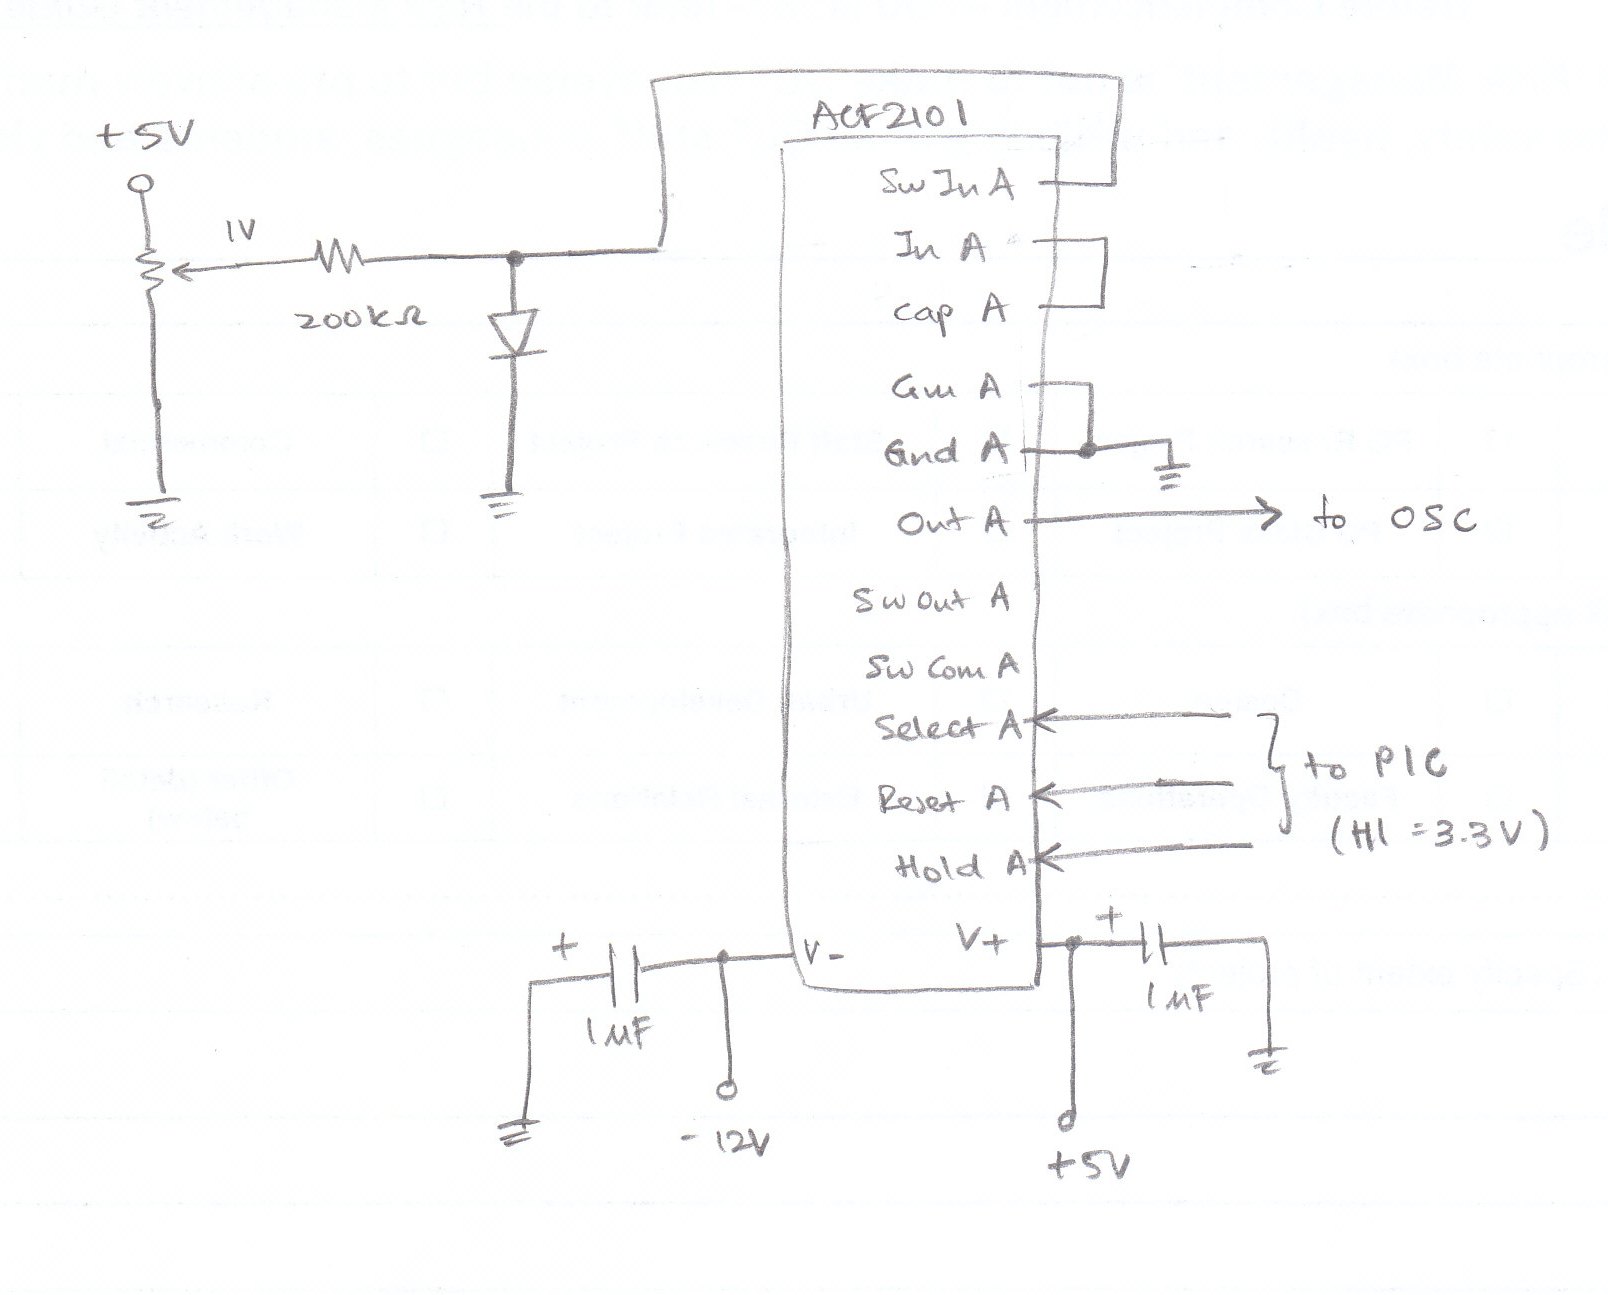 ACF2101
+5V
1V
200kΩ
Sw In A
In A
Cap A
Gnd A
Out A
to OSC
Sw Out A
Sw Com A
Select A
Reset A
Hold A
to PIC
(HI = 3.3V)
V-
V+
+
1µF
-12V
+
1µF
+5V